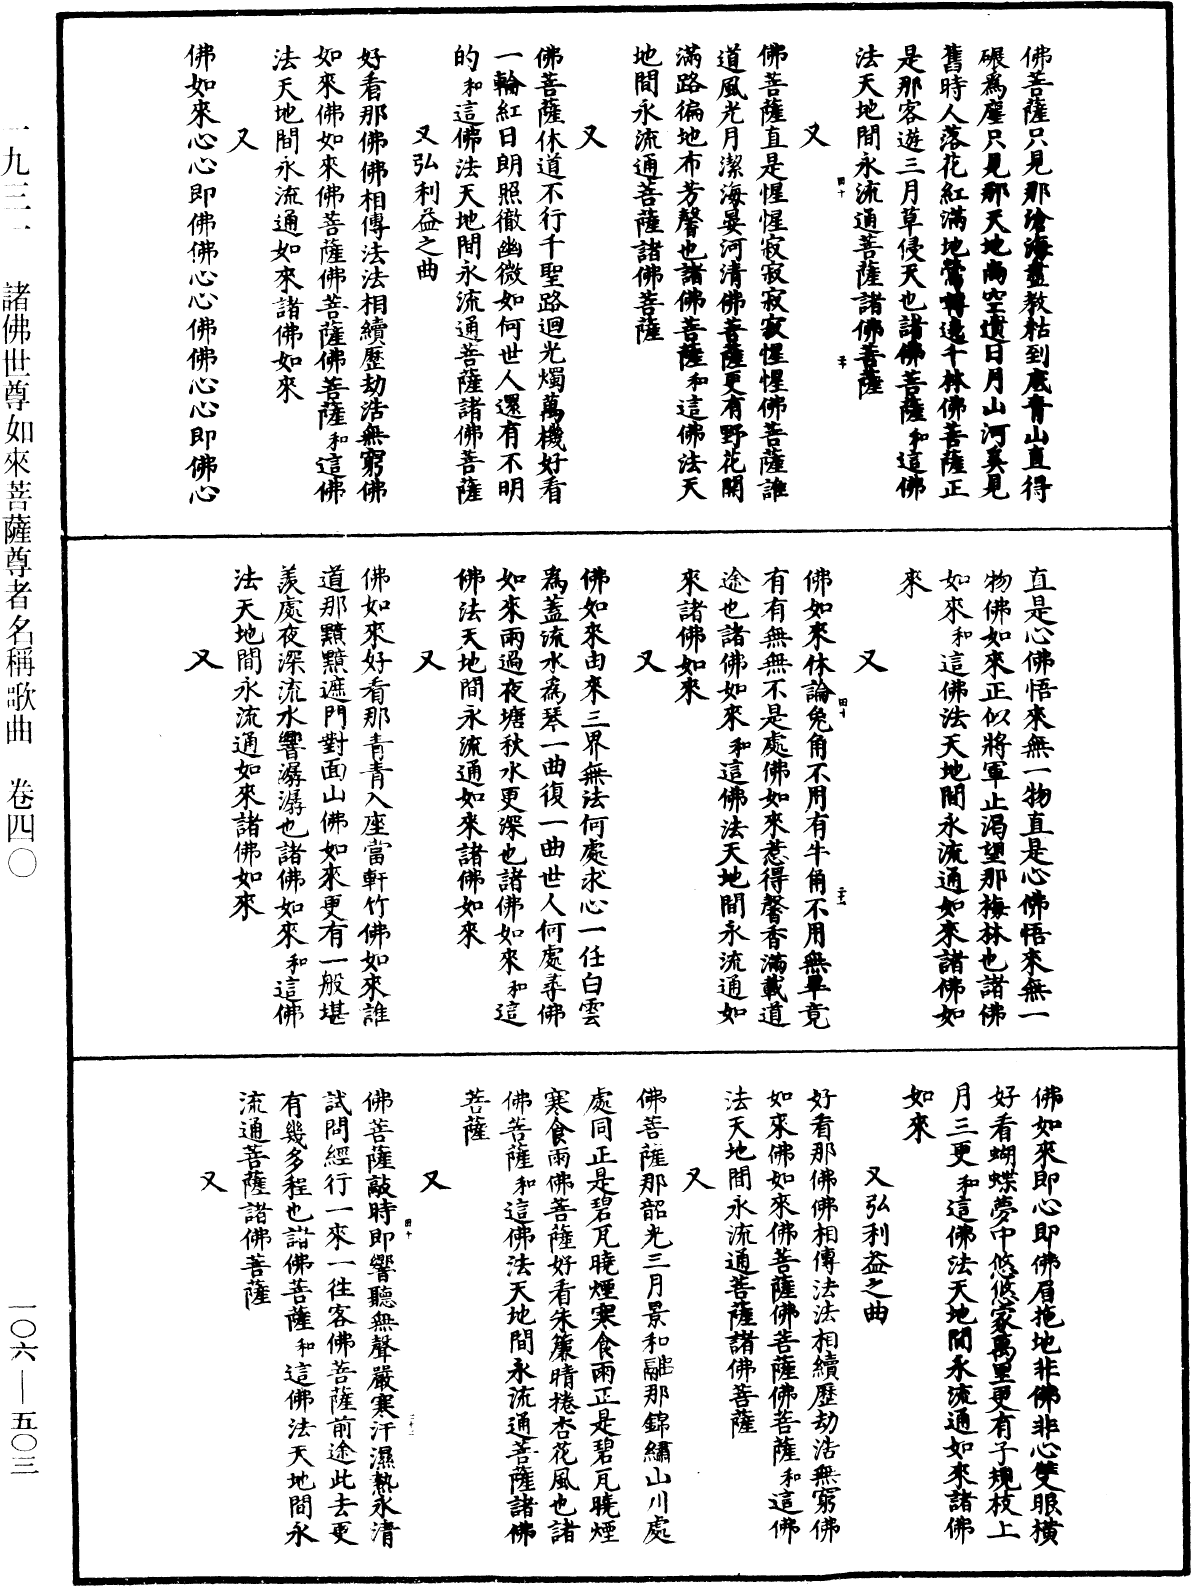 佛菩薩只見那滄海盡教枯到底青山直得
碾為塵只見那天地尚空懷日月山河異見
舊時人落花紅滿地鶯囀邊千林佛菩薩正
是那客遊三月草侵天也諸佛菩薩和這佛
法天地間永流通菩薩諸佛菩薩
又
佛菩薩直是惺惺寂寂寂寂惺惺佛菩薩誰
道風光月潔海晏河清佛菩薩更有野花開
滿路徧地布芳馨也諸佛菩薩和這佛法天
地間永流通菩薩諸佛菩薩
又
佛菩薩休道不行千聖路迴光燭萬機好看
一輪紅日朗照徹幽微如何世人還有不明
的和這佛法天地間永流通菩薩諸佛菩薩
又弘利益之曲
好看那佛佛相傳法法相續歷劫浩無窮佛
如來佛如來佛菩薩佛菩薩佛菩薩和這佛
法天地間永流通如來諸佛如來
又
佛如來心心即佛佛心心佛佛心心即佛心
直是心佛悟來無一物直是心佛悟來無一
物佛如來正似將軍止渴望那梅林也諸佛
如來和這佛法天地間永流通如來諸佛如
來
又
佛如來休論兔角不用有牛角不用無畢竟
有有無無不是處佛如來惹得馨香滿載道
途也諸佛如來和這佛法天地間永流通如
來諸佛如來
又
佛如來由來三界無法何處求心一任白雲
為蓋流水為琴一曲復一曲世人何處尋佛
如來雨過夜塘秋水更深也諸佛如來和這
佛法天地間永流通如來諸佛如來
又
佛如來好看那青青入座當軒竹佛如來誰
道那黯黯遮門對面山佛如來更有一般堪
羨處夜深流水響潺潺也諸佛如來和這佛
法天地間永流通如來諸佛如來
又
佛如來即心即佛眉拖地非佛非心雙眼橫
好看蝴蝶夢中悠悠家萬里更有子規枝上
月三更和這佛法天地間永流通如來諸佛
如來
又弘利益之曲
好看那佛佛相傳法法相續歷劫浩無窮佛
如來佛如來佛菩薩佛菩薩佛菩薩和這佛
法天地間永流通菩薩諸佛菩薩
又
佛菩薩那韶光三月景和融那錦繡山川處
處同正是碧瓦曉煙寒食雨正是碧瓦曉煙
寒食雨佛菩薩好看朱簾晴捲杏花風也諸
佛菩薩和這佛法天地間永流通菩薩諸佛
菩薩
又
佛菩薩敲時即響聽無聲嚴寒汗濕熱永清
試問經行一來一往客佛菩薩前途此去更
有幾多程也諸佛菩薩和這佛法天地間永
流通菩薩諸佛菩薩
又
一九三一 諸佛世尊如來菩薩尊者名稱歌曲 卷四〇
一〇六—五〇三